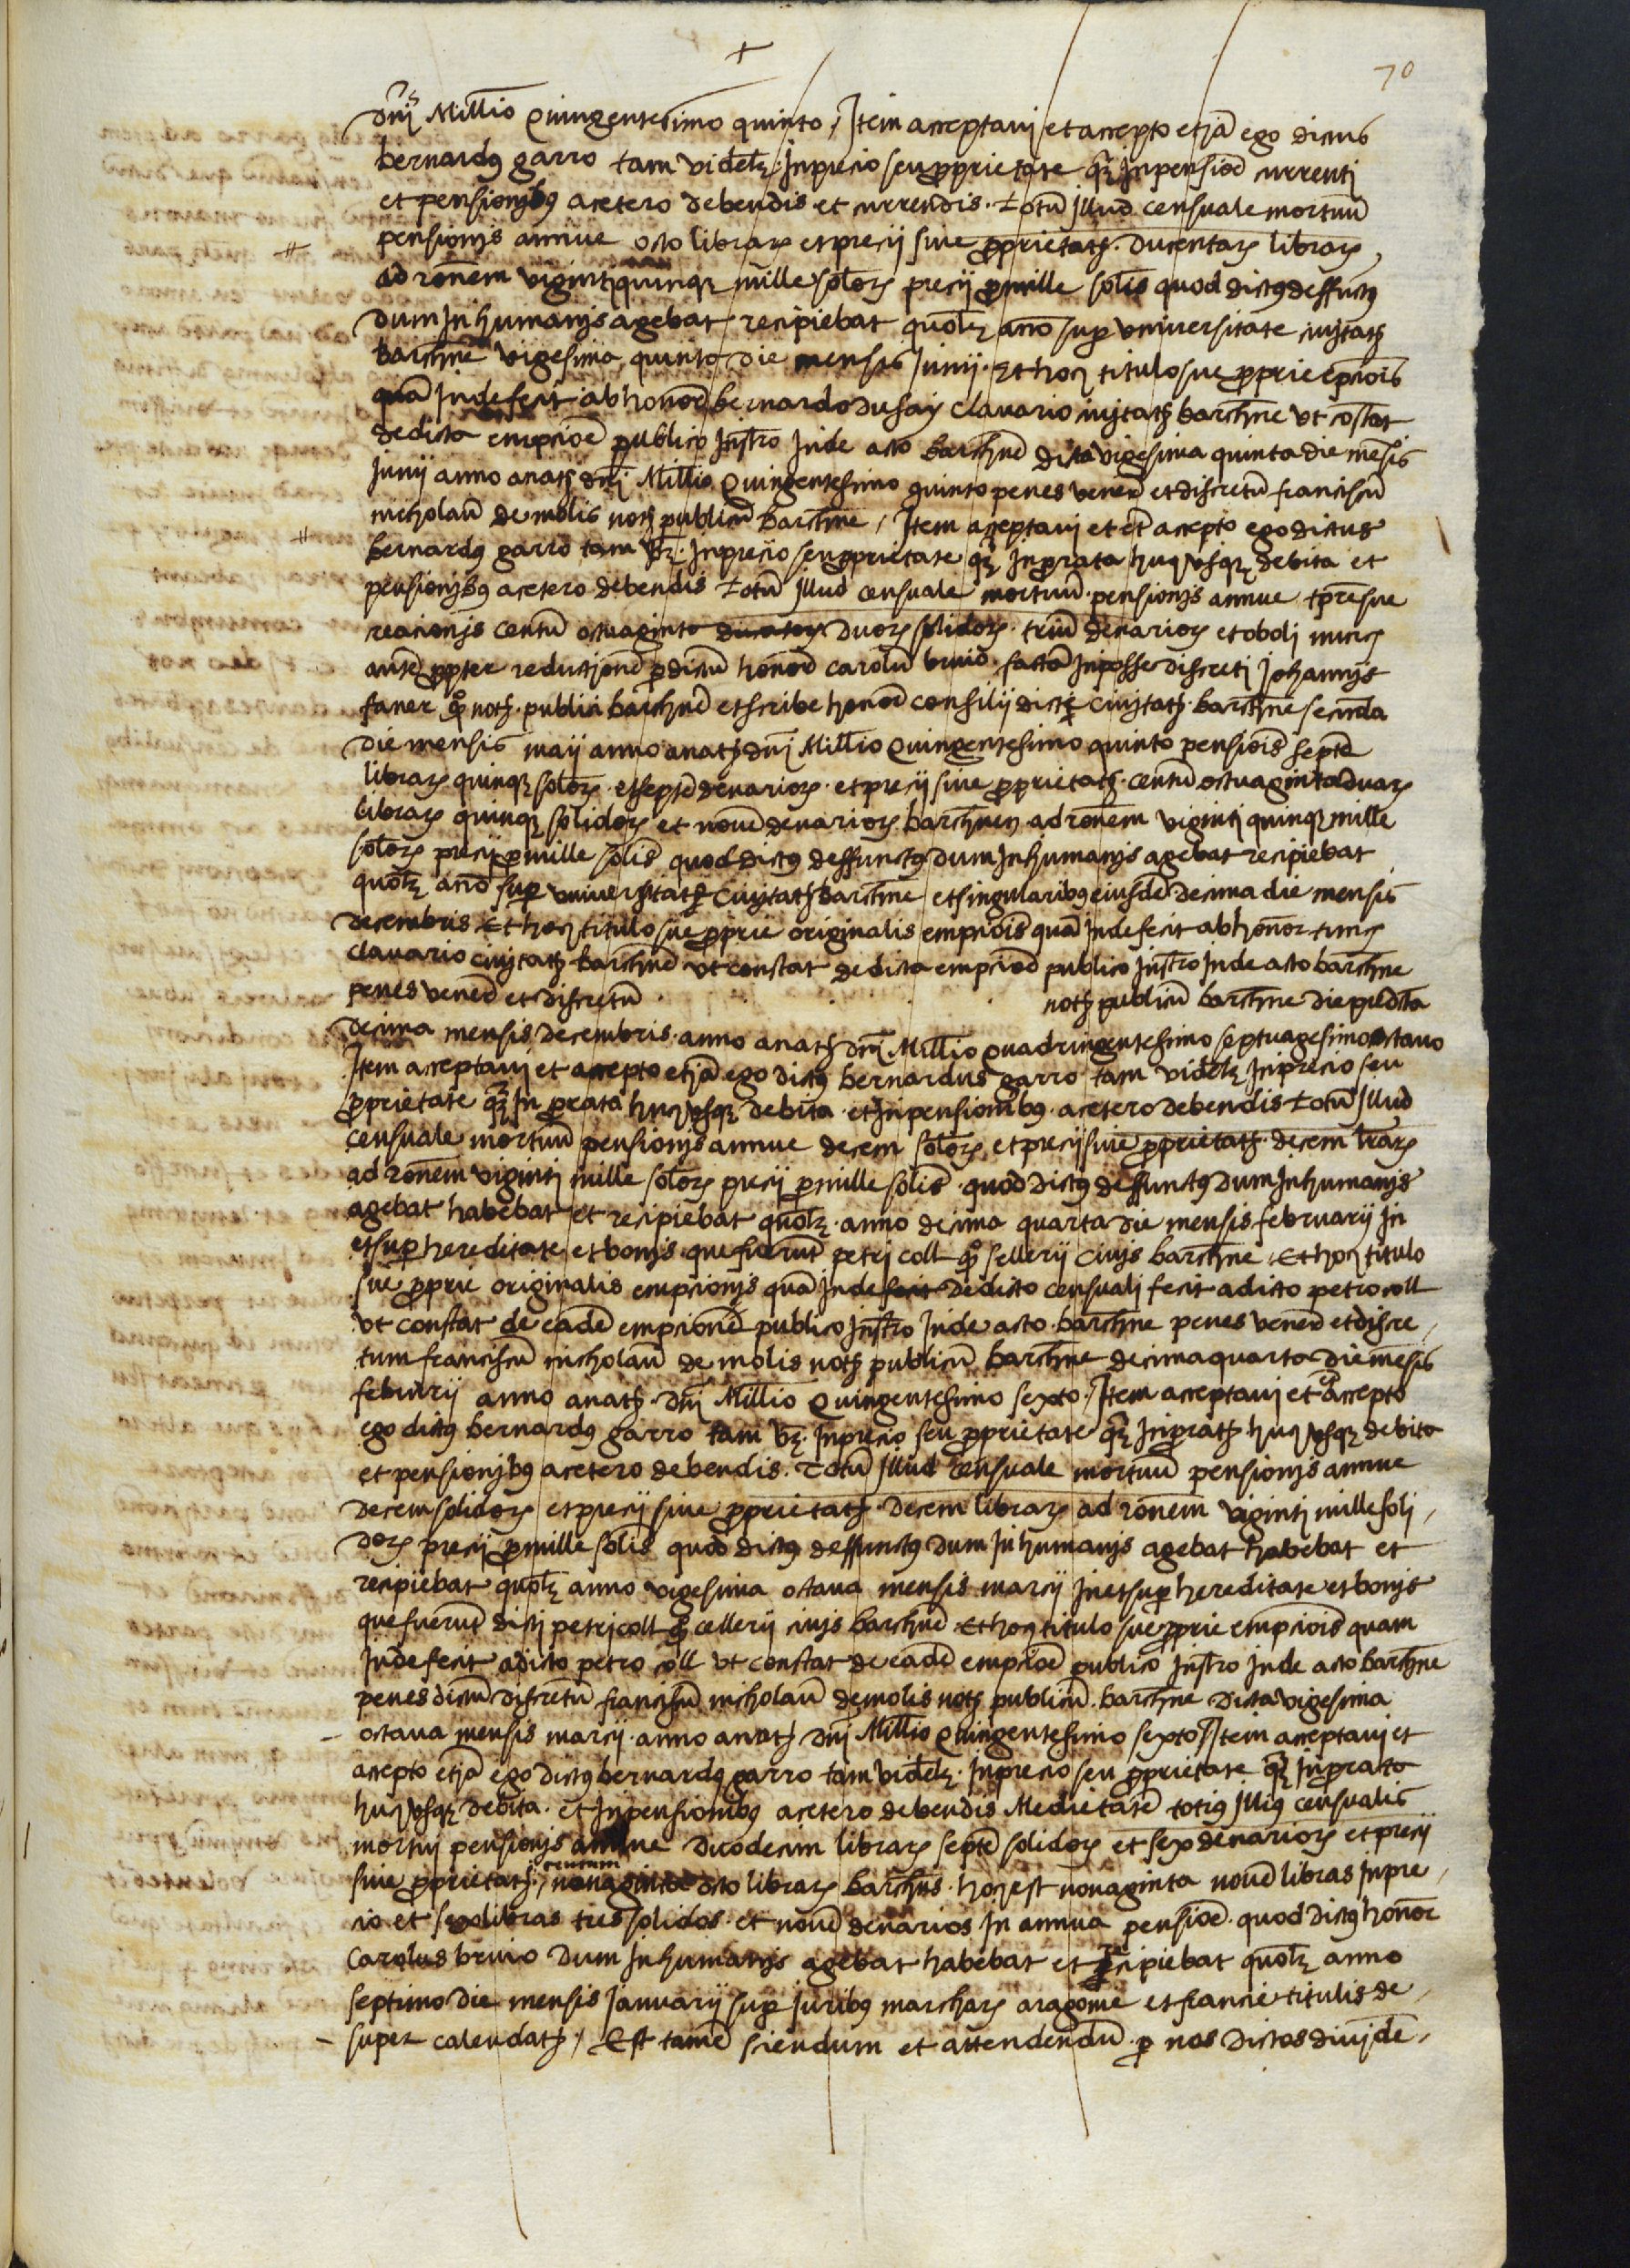 +
70
dnj Millio Quingentesimo quinto / Item acceptavi et accepto etia ego dictus
bernardus garro tam videlz. In precio seu proprietate qz In pensioe currenti
et pensionibus acetero debendis et currendis. totu illud censuale mortuu
pensionjs annue octo librarz et precij sive proprietatz. ducentarz librarz
ad ronem viginti quinqz mille solorz precij pro mille solis quod dictus deffuctus
dum In humanjs agebat recipiebat quolz ano sup universitate civjtatz
barchne vigesima quinta die mensis Junij. Et hoc titulo sue proprie epciois
qua Inde fecit ab honore bernardo dusay clavario civjtatz barchne ut costat
de dicta empcioe publico Instro Inde acto barchne dicta vigesima quinta die mesis
Junij anno a natz dnj Millio Quingentesimo quinto penes vener et discretu francischu
nicholau de molis notz publicu barchne / Item acceptavi et et accepto ego dictus
bernardus garro tam vz. In precio seu proprietate qz In prorata huc usqz debita et
pensionjbus acetero debendis totu illud censuale mortuu. pensionjs annue
reacionjs centu octuaginta ducatorz duorz solidorz. triu denariorz et oboli nunc
aute propter reductione p dictu honore carolu bruio facta In posse discreti Johannjs
faner qo notz. publici barchne et scribe honore consilij dicte civjtatz. barchne secunda
die mensis maij anno a natz dnj Millio Quingentesimo quinto pensiois septe
librarz quinqz solorz. et septe denariorz. et precij sive proprietatz. centu octuaginta duarz
librarz quinqz solidorz et nove denariorz barchnen ad ronem viginti quinqz mille
solorz precij pro mille solis quod dictus deffunctus dum In humanjs agebat recipiebat
quolz ano sup universitate civjtatz barchne et singularibus eiusde decima die mensis
decembris Et hoc titulo sue proprie originalis empciois qua Inde fecit ab honor tunc
clavario civjtatz barchne ut constat de dicta empcioe publico Instro Inde acto barchne
penes vener et discretu . . . notz publicu barchne die predicta
decima mensis decembris. anno a natz dnj Millio quadringentesimo septuagesimo octavo
Item acceptavi et accepto etia ego dictus bernardus garro tam videlz In precio seu
proprietate qz In prorata huc usqz debita. et In pensionibus. acetero debendis totu illud
censuale mortuu pensionjs annue decem solorz et precij sive proprietatz. decem lrarz
ad ronem viginti mille solorz precij pro mille solis. quod dictus deffunctus dum In humanjs
agebat habebat et recipiebat quolz. anno decima quarta die mensis februarij In
et sup hereditate et bonjs que fuerut petri coll qo sellerij civis barchne. Et hoc titulo
sue proprie originalis empcionjs qua Inde fecit de dicto censuali fecit a dicto petro coll
ut constat de eade empcione publico Instro Inde acto. barchne penes vener et discre/
tum francischu nicholau de molis notz publicu barchne decima quarta die mesis
februrij anno a natz. dnj Millio Quingentesimo sexto / Item acceptavi et accepto
ego dictus bernardus garro tam vz. In precio seu proprietate qz In proratz huc usqz debita
et pensionjbus acetero debendis. totu illud censuale mortuu pensionjs annue
decem solidorz et precij sive proprietatz. decem librarz ad ronem viginti mille soli/
dorz precij pro mille solis quod dictus deffunctus dum In humanjs agebat habebat et
recipiebat quolz anno vigesima octava mensis marcij In et sup hereditate et bonjs
que fuerut dicti petri coll qo cellerij civis barchne Et hoc titulo sue proprie empciois quam
Inde fecit a dicto petro coll ut constat de eade empcioe publico Instro Inde acto barchne
penes dictu discretu francischu nicholau de molis notz publicu. barchne dicta vigesima
octava mensis marcij. anno a natz dnj Millio Quingentesimo sexto / Item acceptavi et
accepto etia ego dictus bernardus garro tam videlz. In precio seu proprietate qz In prorata
huc usqz debita. et In pensionibus acetero debendis Medietate totius illius censualis
mortuj pensionjs annue duodecim librarz septe solidorz et sex denariorz et precij
sive proprietatz / centum nonaginta octo librarz barchns. hoc est nonaginta nove libras In pre/
cio et sex libras tres solidos. et nove denarios In annua pensioe. quod dictus honor
Carolus bruio dum In humanjs agebat habebat et recipiebat quolz anno
septimo die mensis Januarij sup Juribus marcharz aragonie et francie titulis de/
super calendatz / Est tame sciendum et attendendu p nos dictos dividë/